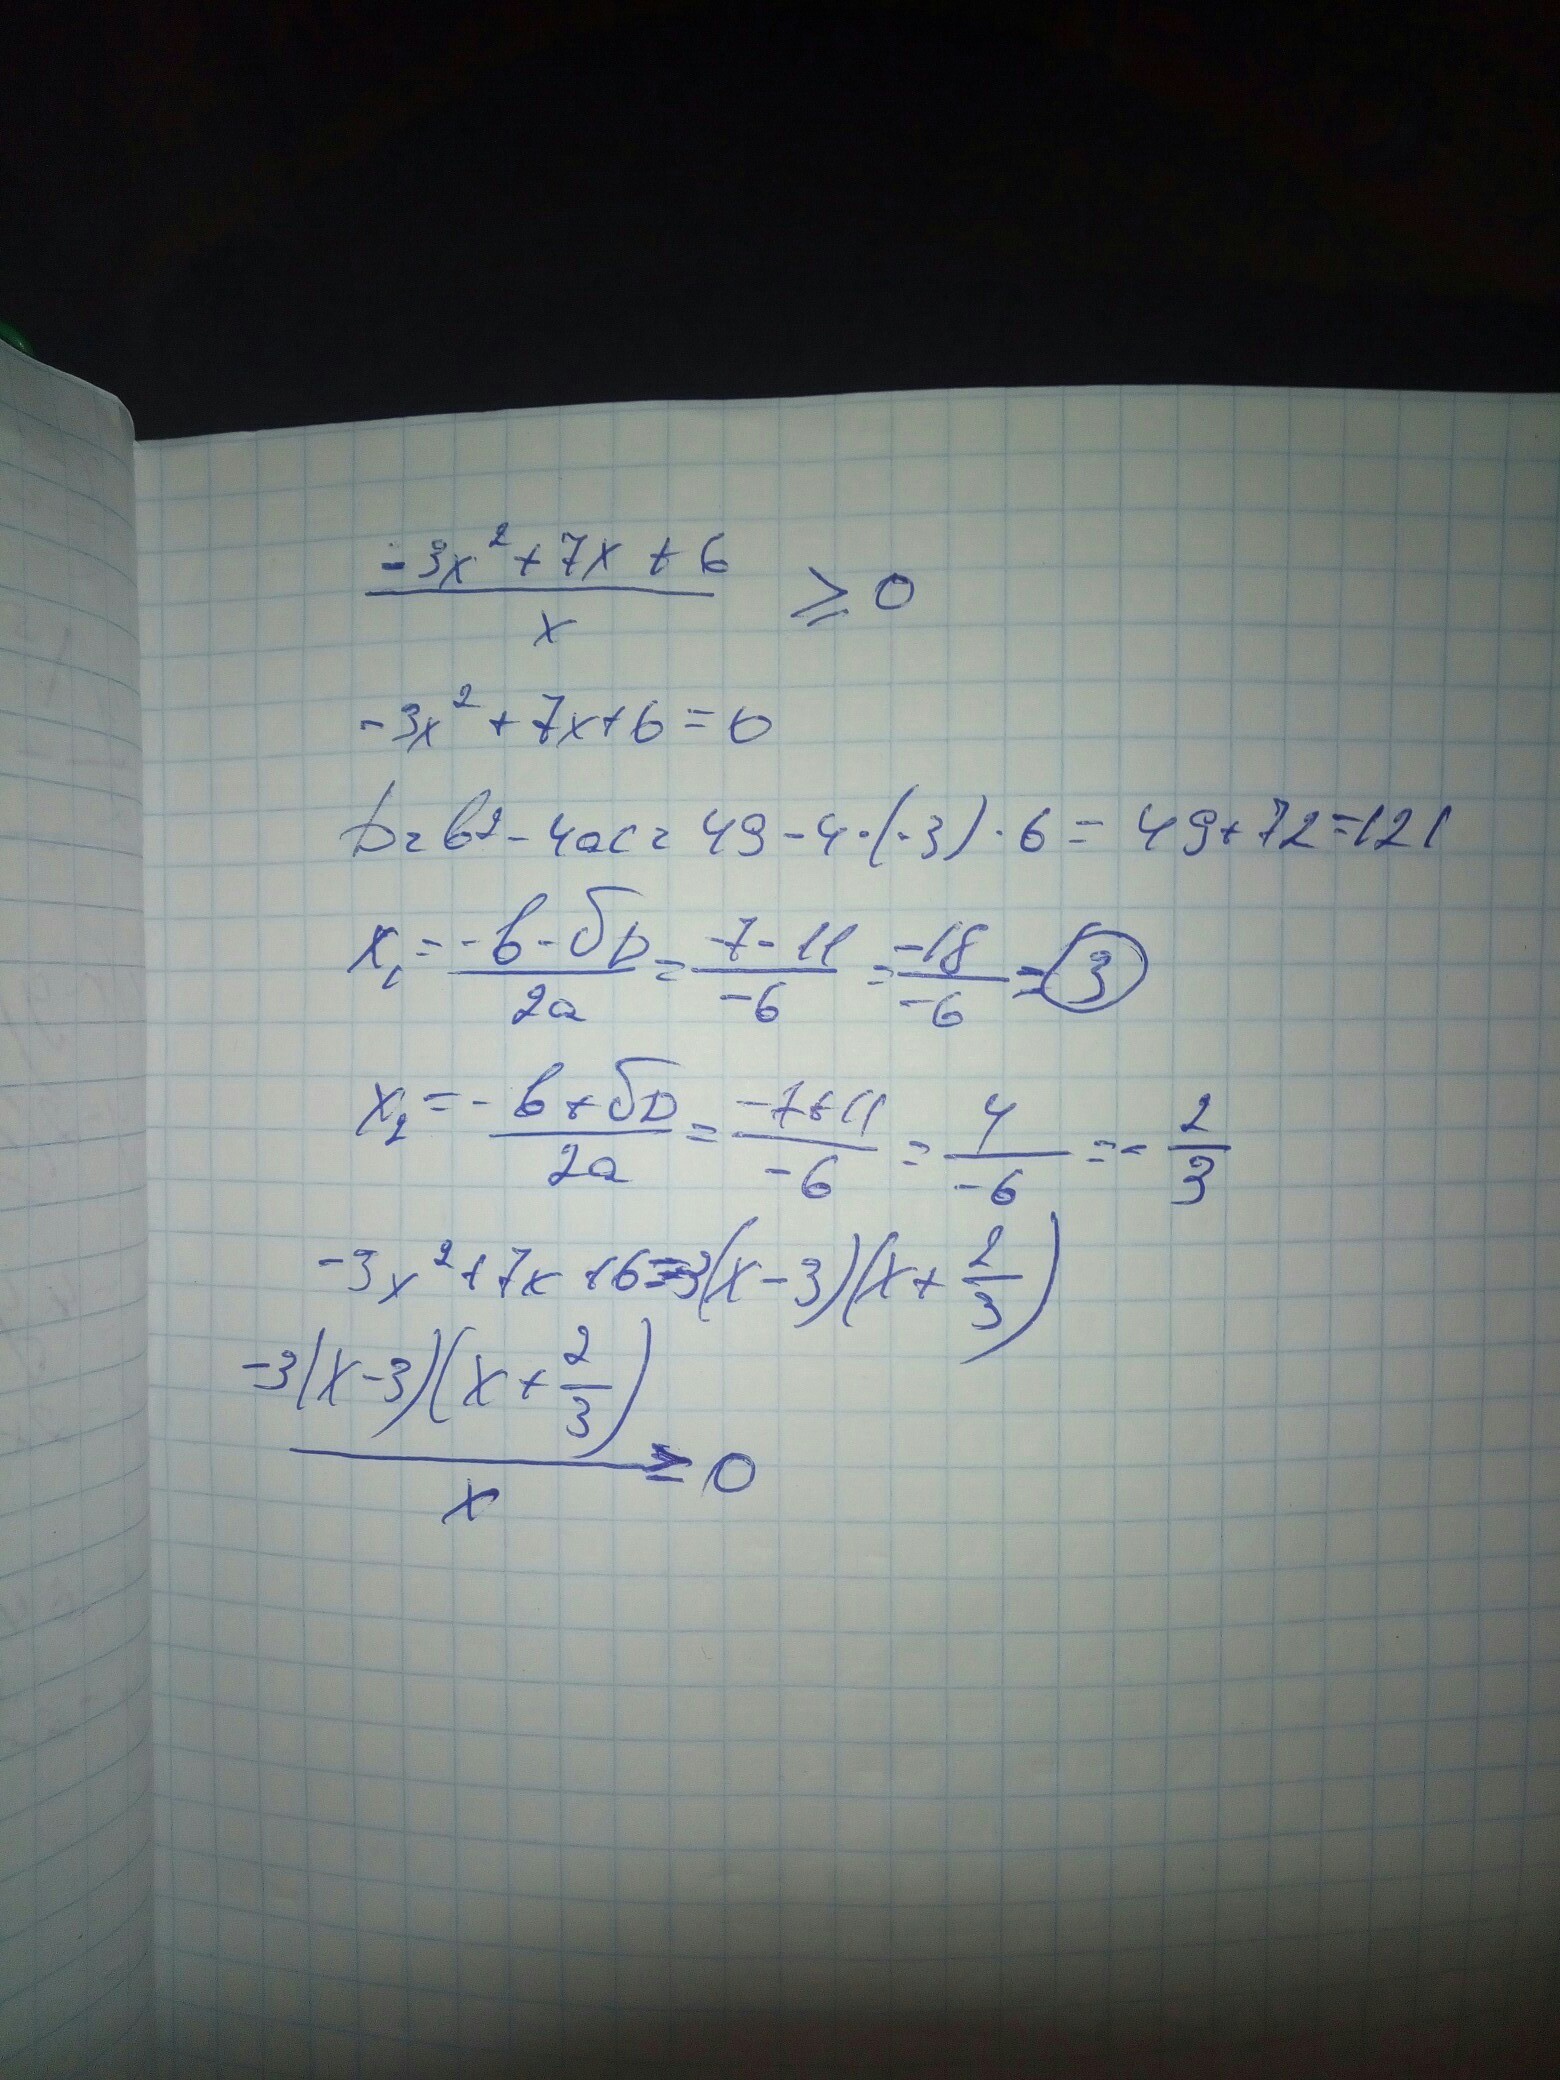 (-3x² + 7x + 6)/x ⩾ 0
-3x² + 7x + 6 = 0
D = b² - 4ac = 49 - 4·(-3)·6 = 49 + 72 = 121
x₁ = (-b - √D)/2a = (-7 - 11)/-6 = -18/-6 = 3
x₂ = (-b + √D)/2a = (-7 + 11)/-6 = 4/-6 = -2/3
-3x² + 7x + 6 = -3(x - 3)(x + 2/3)
-3(x - 3)(x + 2/3)/x ≥ 0